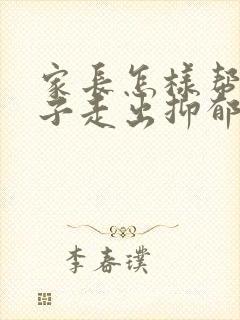 家長怎樣幫
子走出抑郁
李春璞